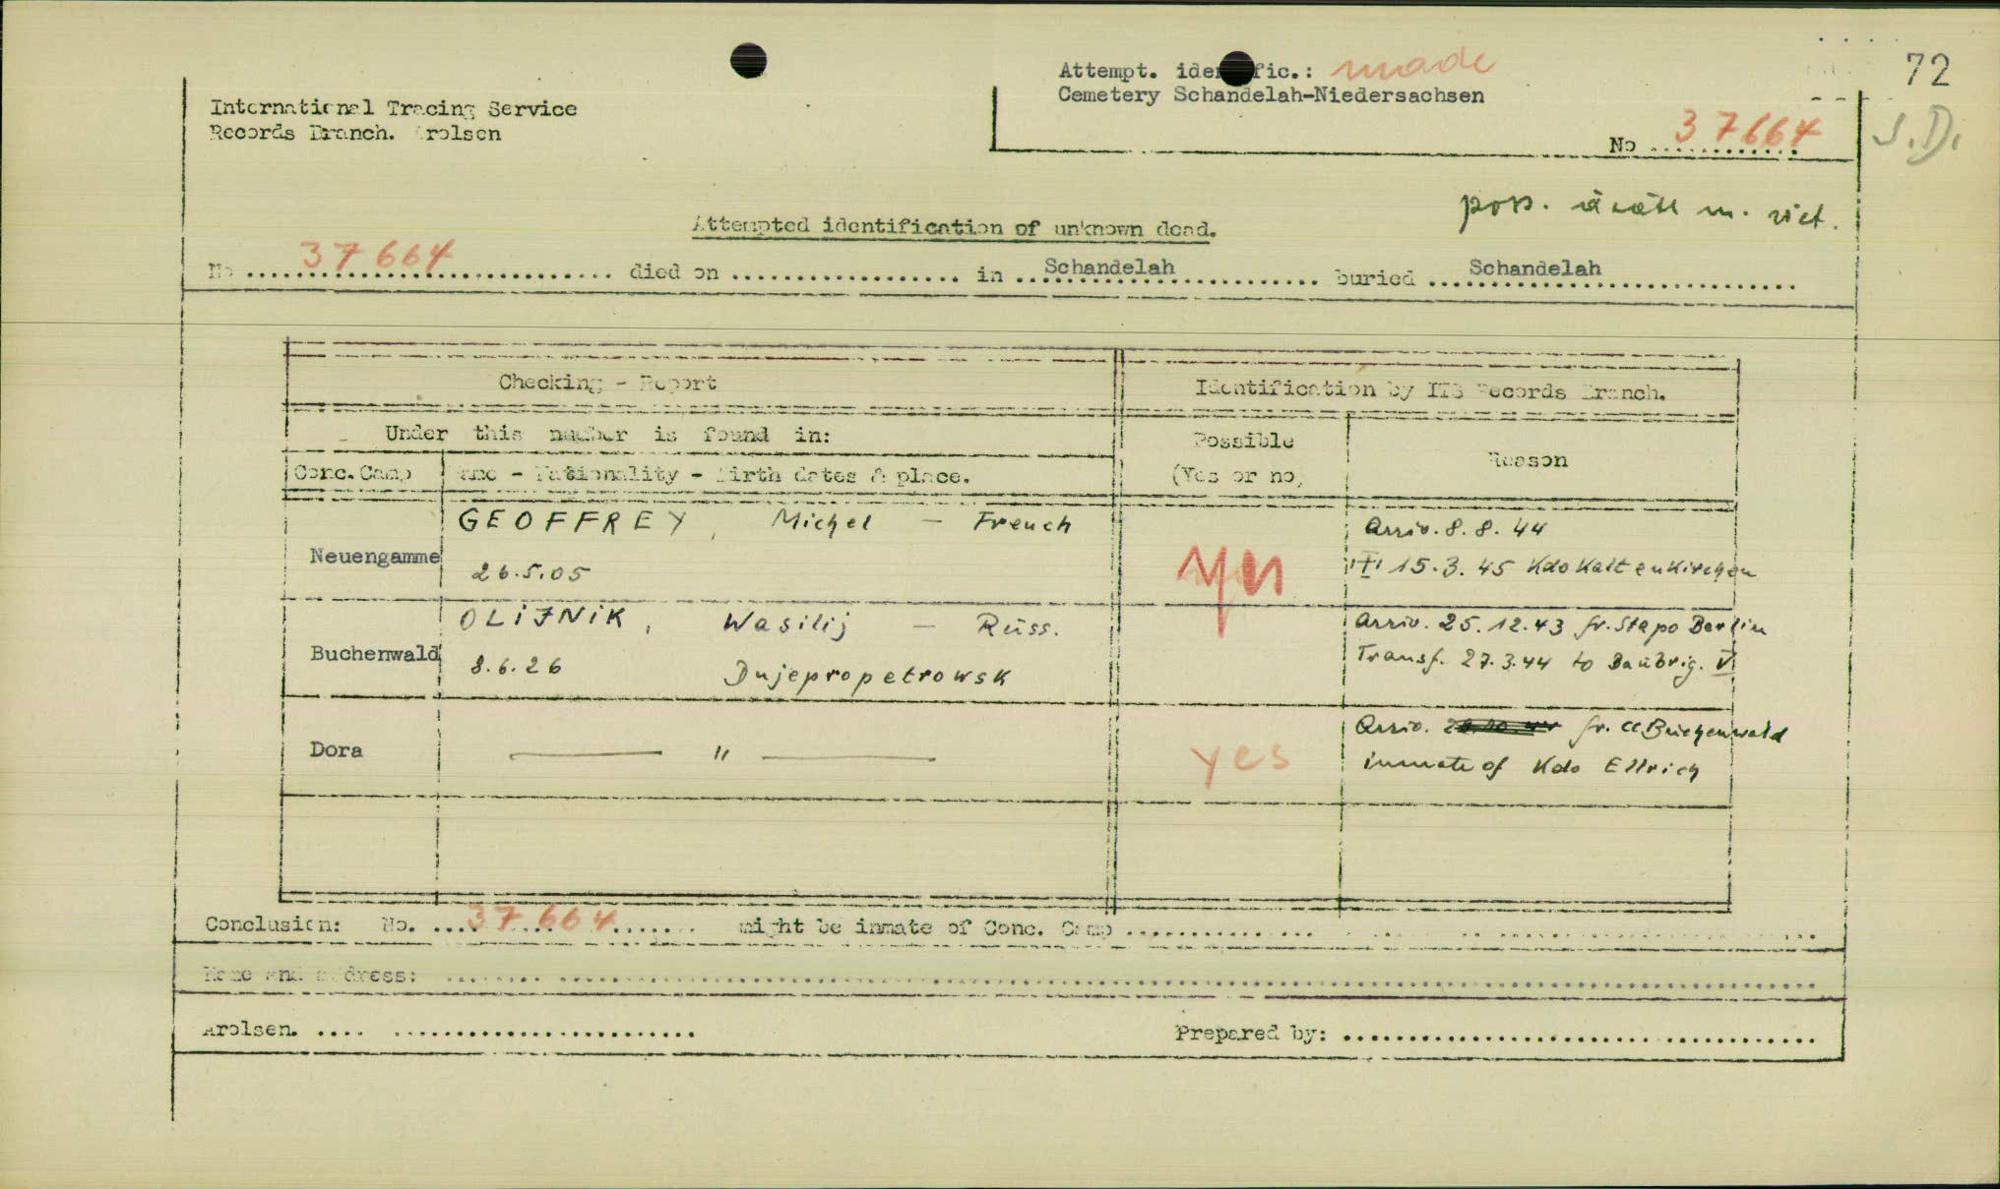 72
Attempt. identific.: made
Cemetery Schandelah-Niedersachsen
International Tracing Service
Records Branch. Arolsen
No 37664
S.D.
poss.
Attempted identification of unknown dead.
No 37664 died on in Schandelah buried Schandelah
Checking - Report
Identification by ITS Records Branch.
Under this number is found in:
Possible
(Yes or no)
Reason
Conc. Camp
Name - Nationality - Birth dates & place.
Neuengamme
GEOFFREY, Michel - French
26.5.05
yes
Arriv. 8.8.44
15.3.45 Kdo Kaltenkirchen
Buchenwald
OLIJNIK, Wasilij - Russ.
8.6.26 Dnjepropetrowsk
Arriv. 25.12.43 fr. Stapo Berlin
Transf. 27.3.44 to Baubrig. V
Dora
"
yes
Arriv. fr. CC Buchenwald
inmate of Kdo Ellrich
Conclusion: No. 37664 might be inmate of Conc. Camp
Name and address:
Arolsen.
Prepared by: